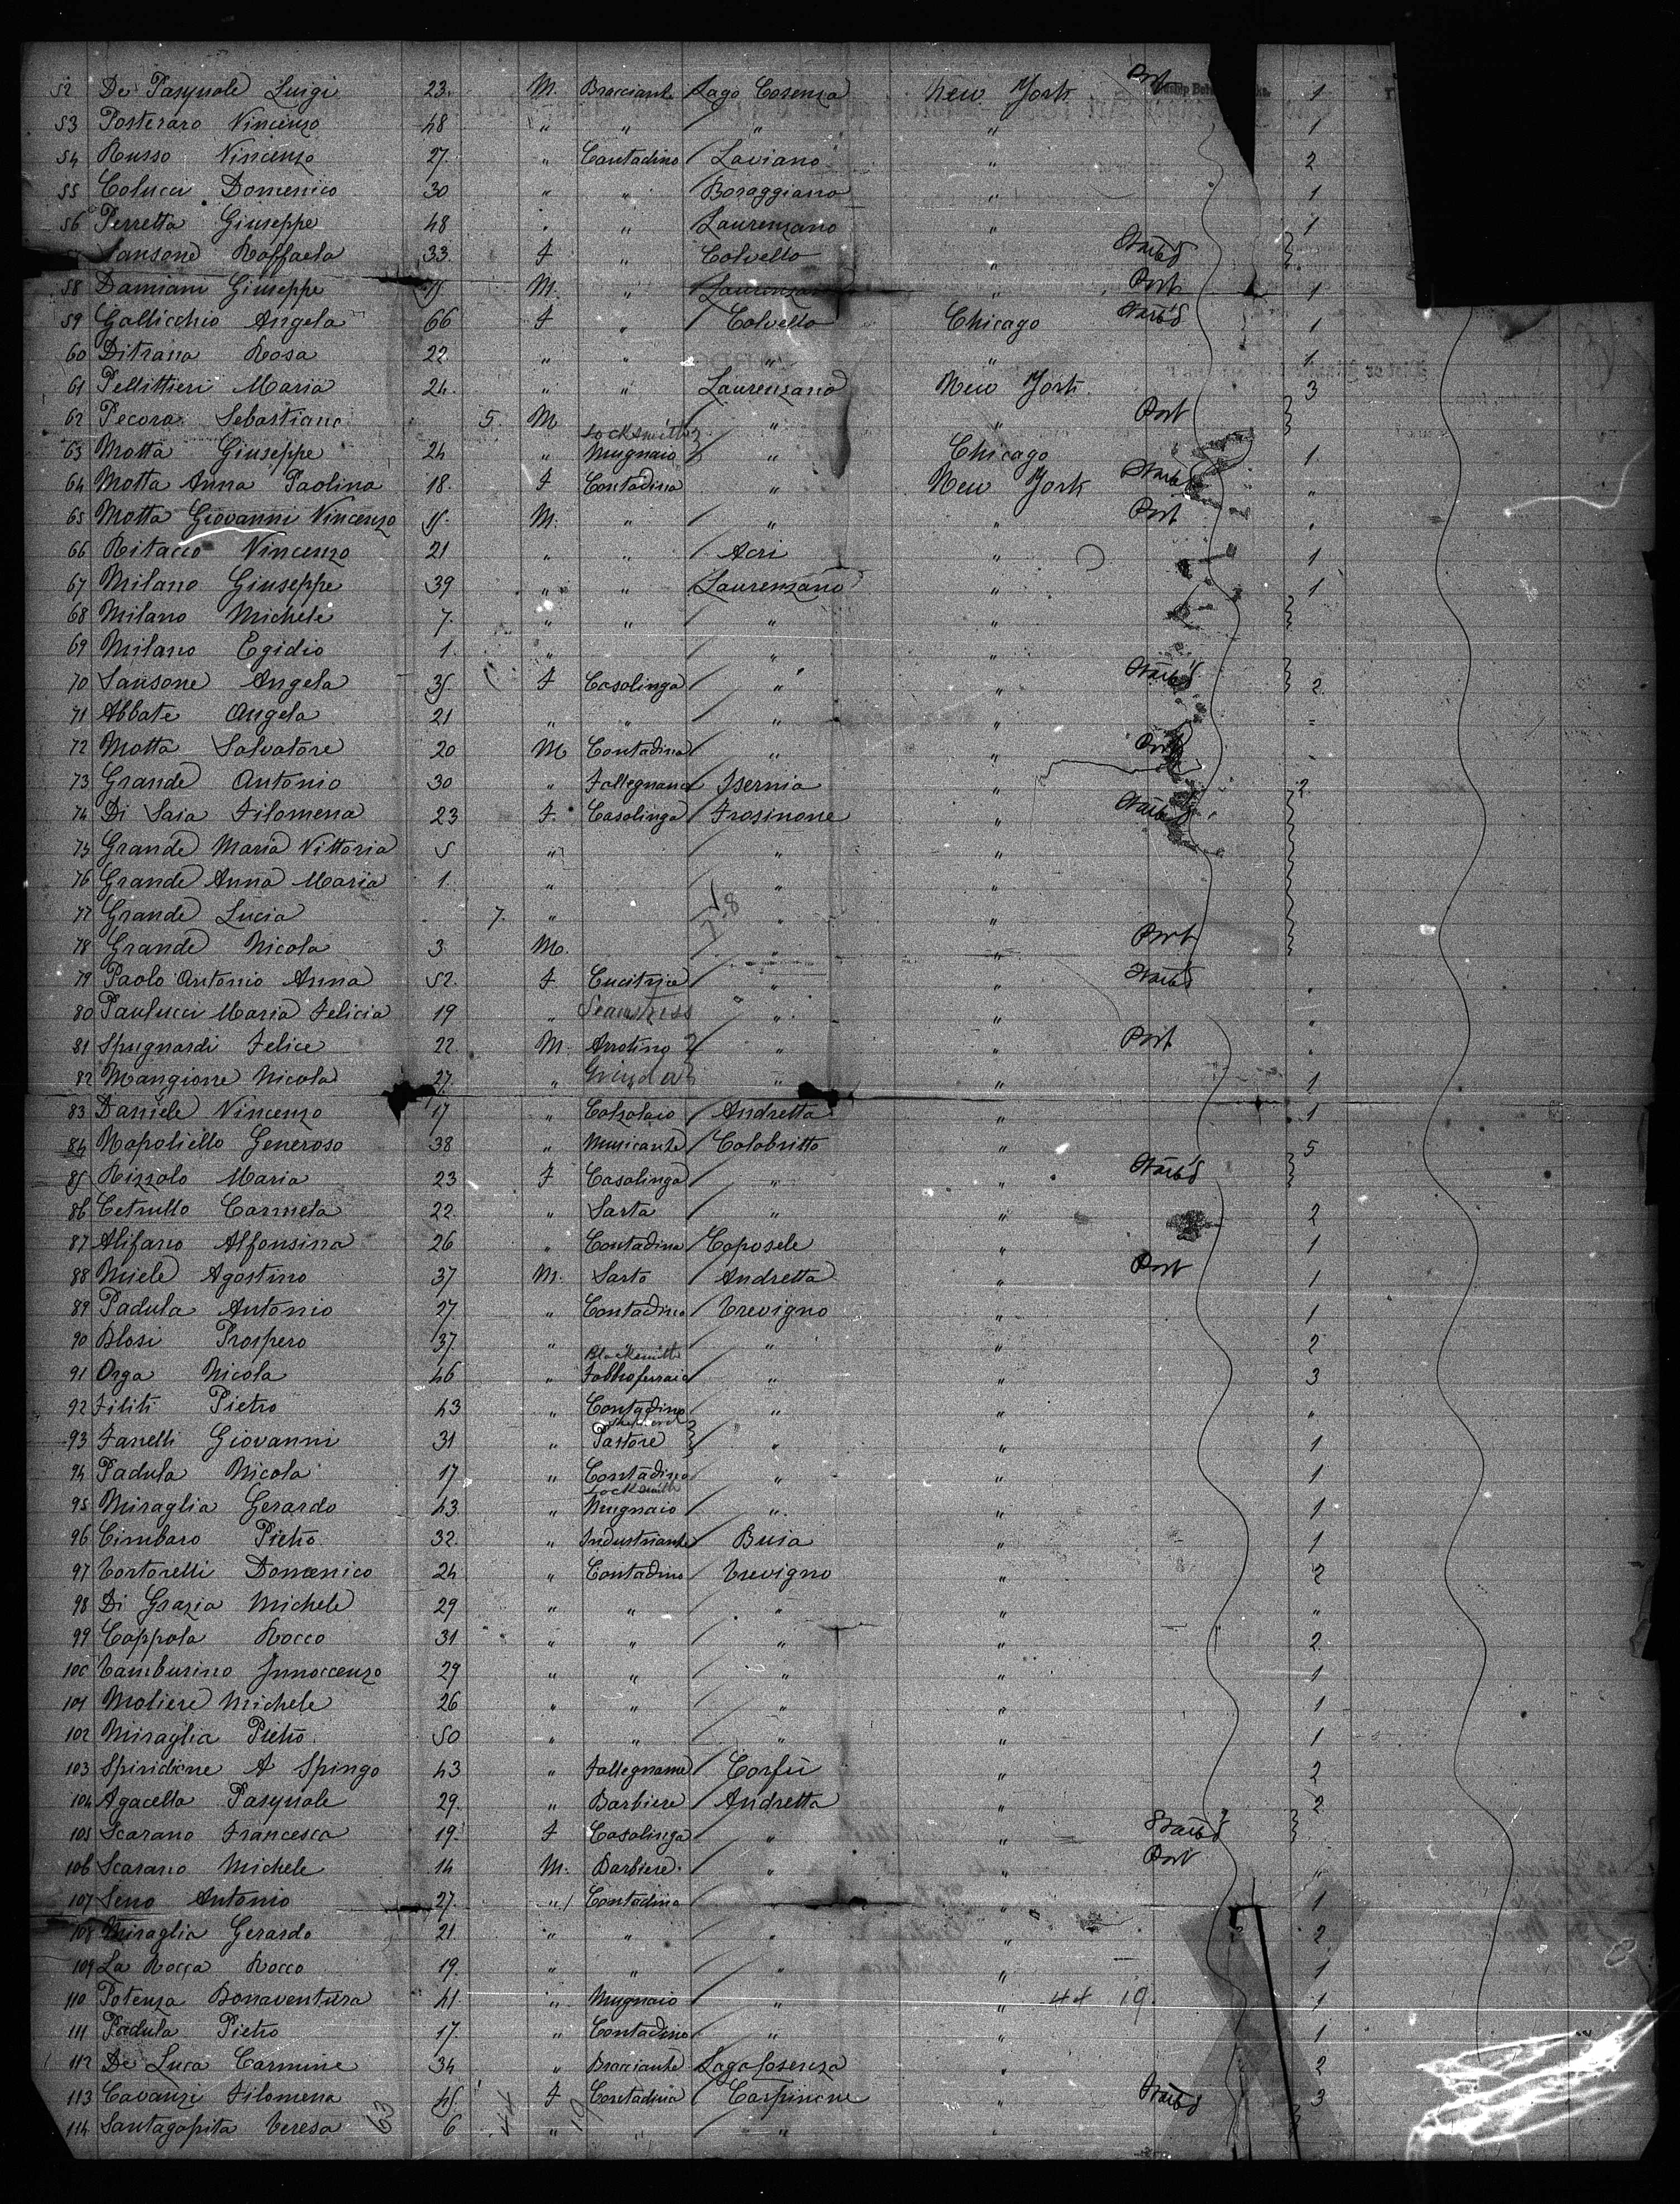 52 De Pasquale Luigi 23. M. Bracciante Lago Cosenza New York Port 1
53 Posteraro Vincenzo 48 " " " " 1
54 Russo Vincenzo 27. " Contadino Laviano " 2
55 Colucci Domenico 30 " " Baraggiano " 1
56 Perretta Giuseppe 48 " " Laurenzano " 1
Sansone Raffaela 33. F " Calvello " Starb'd
58 Damiani Giuseppe M. " Laurenzano " Port 1
59 Gallicchio Angela 66 F " Calvello Chicago Starb'd 1
60 Ditrana Rosa 22. " " " " 1
61 Pellittieri Maria 24. " " Laurenzano New York 3
62 Pecora Sebastiano 5. M " " Port
Locksmith
63 Motta Giuseppe 24 " Mugnaio " Chicago 1
64 Motta Anna Paolina 18. F Contadina " New York Starb'd "
65 Motta Giovanni Vincenzo M. " " " Port "
66 Ritacco Vincenzo 21 " " Acri " 1
67 Milano Giuseppe 39 " " Laurenzano " 1
68 Milano Michele 7. " " " "
69 Milano Egidio 1. " " "
70 Sansone Angela 35. F Casalinga " " Starb'd 2.
71 Abbate Angela 21 " " " " "
72 Motta Salvatore 20 M Contadina " " Port "
73 Grande Antonio 30 " Fallegname Isernia " 2
74 Di Saia Filomena 23 F. Casalinga Frosinone " Starb'd
75 Grande Maria Vittoria 5 " " "
76 Grande Anna Maria 1. " " "
77 Grande Lucia 7. " " "
78 Grande Nicola 3 M. " " Port
79 Paolo Antonio Anna 52. F. Cucitrice " " Starb'd "
80 Paulucci Maria Felicia 19 " Seamstress " " "
81 Spugnardi Felice 22. M. Arrotino " " Port "
82 Mangione Nicola 27. " Grinder " " 1
83 Daniele Vincenzo 17 " Calzolaio Andretta " 1
84 Napoliello Generoso 38 " Musicante Calabritto " 5
85 Rizzolo Maria 23 F Casalinga " " Starb'd
86 Cetrullo Carmela 22. " Sarta " " 2
87 Alifano Alfonsina 26 " Contadina Caposele " 1
88 Miele Agostino 37 M. Sarto Andretta " Port 1
89 Padula Antonio 27. " Contadino Trevigno " 1
90 Blosi Prospero 37. " " " " 2
Blacksmith
91 Orga Nicola 46 " Fabbroferraio " " 3
92 Filiti Pietro 43 " Contadino " " "
Shepherd
93 Fanelli Giovanni 31 " Pastore " " 1
94 Padula Nicola 17 " Contadino " " 1
Locksmith
95 Miraglia Gerardo 43 " Mugnaio " " 1
96 Cimbaro Pietro 32. " Industriante Buia " 1
97 Tortorelli Domenico 24 " Contadino Trevigno " 2
98 Di Grazia Michele 29 " " " " "
99 Coppola Rocco 31 " " " " 2.
100 Tamburino Innoccenzo 29 " " " " 1
101 Moliere Michele 26 " " " " 1
102 Miraglia Pietro 50 " " " " 1
103 Spiridione A Spingo 43 " Fallegname Corfù " 2
104 Agacella Pasquale 29. " Barbiere Andretta " 2
105 Scarano Francesca 19. F Casalinga " " Starb'd
106 Scarano Michele 14 M. Barbiere. " " Port "
107 Seno Antonio 27. " Contadina " " 1
108 Miraglia Gerardo 21 " " " " 2
109 La Rocca Rocco 19. " " " " 1
110 Potenza Bonaventura 41. " Mugnaio " " 44 19. 1
111 Padula Pietro 17. " Contadino " " 1
112 De Luca Carmine 34 " Bracciante Lago Cosenza " 2
113 Cavanzi Filomena 45. F Contadina Carpinone " Starb'd 3
114 Santagapita Teresa 63 6 44 " 19 " "